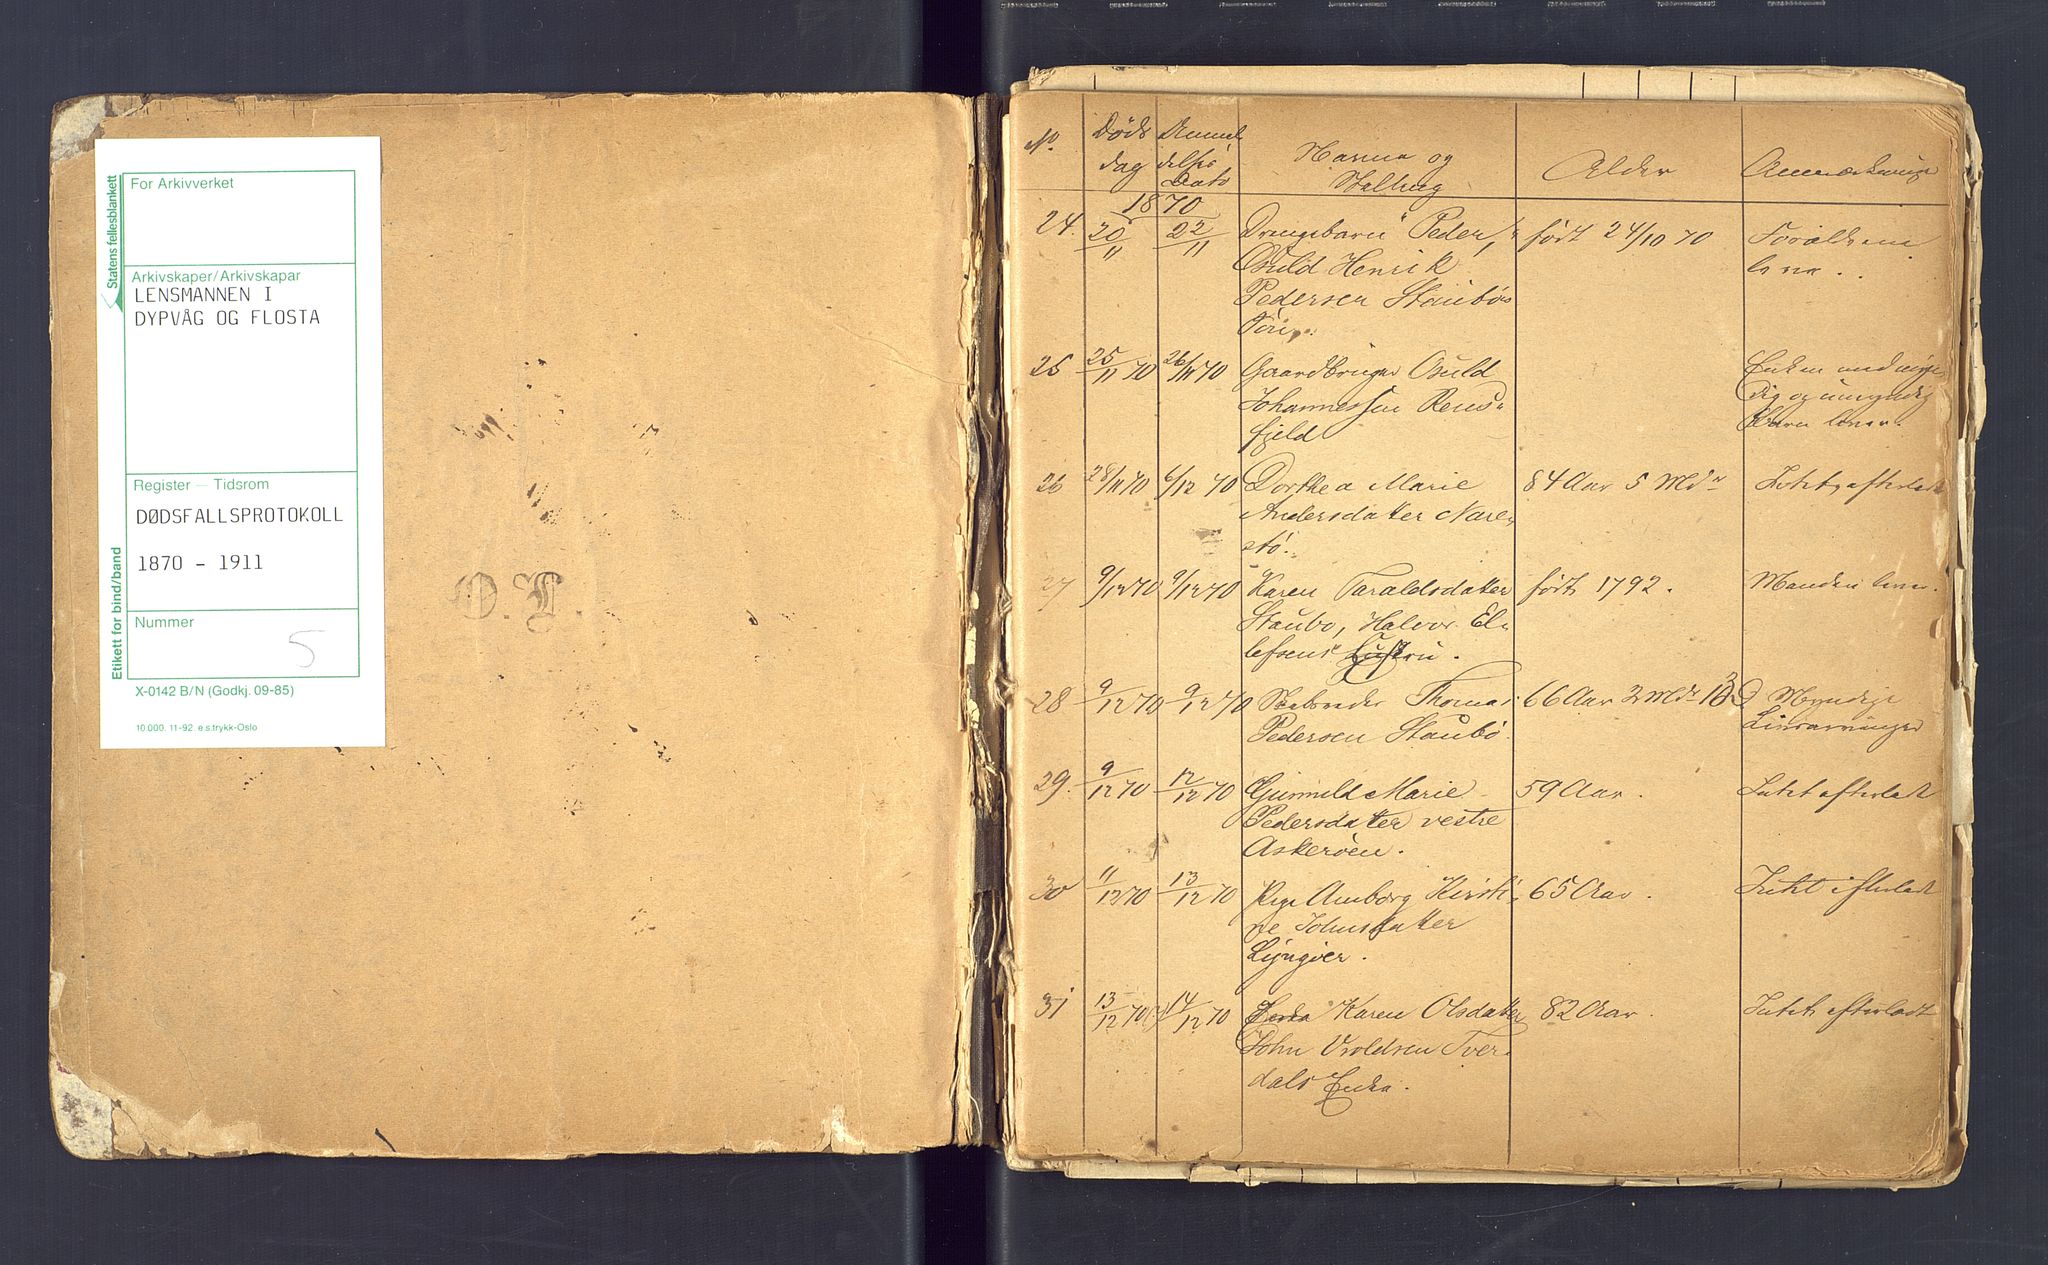 For Arkivverket
Statens fellesblankett
Arkivskaper/Arkivskapar
LENSMANNEN I
DYPVÅG OG FLOSTA
Register — Tidsrom
DØDSFALLSPROTOKOLL
1870 - 1911
Etikett for bind/band
Nummer
5
X-0142 B/N (Godkj. 09-85)
10.000. 11-92 e.s.trykk-Oslo
O. L.
No. Døds Anmel
dag delses Navne og Alder Anmærkninger
Dato Stilling
1870
24. 20/11 22/11 Drengebarn Peder født 24/10 70 Forældrene
Osuld Henrik leve..
Pedersen Staubø
25 25/11 70 26/11 70 Gaardbruger Osuld Enken and myn
Johannessen Rens- dig og umyndig
fjeld Børn lever.
26 28/11 70 6/12 70 Dorthea Marie 84 Aar 5 Mdr Intet efterladt
Andersdatter Nare-
stø.
27 9/12 70 9/12 70 Karen Taraldsdatter født 1792. Manden lever.
Staubo, Halvor El-
lefsens Hustru.
28 9/12 70 9/12 70 Thomas 66 Aar 2 Mdr D Myndige
Pedersen Staubø. Livsarvinger
29. 9/12 70 12/12 70 Gunnild Marie 59 Aar. Intet efterladt
Pedersdatter vestre
Askerøen.
30 11/12 70 13/12 70 Pige Anborg Kirsti- 65 Aar. Intet efterladt
ne Johnsdatter
Lyngøer.
31 13/12 70 14/12 70 Enke Karen Olsdatter 82 Aar. Intet efterladt
John Vroldsen Tver
dals Enke.